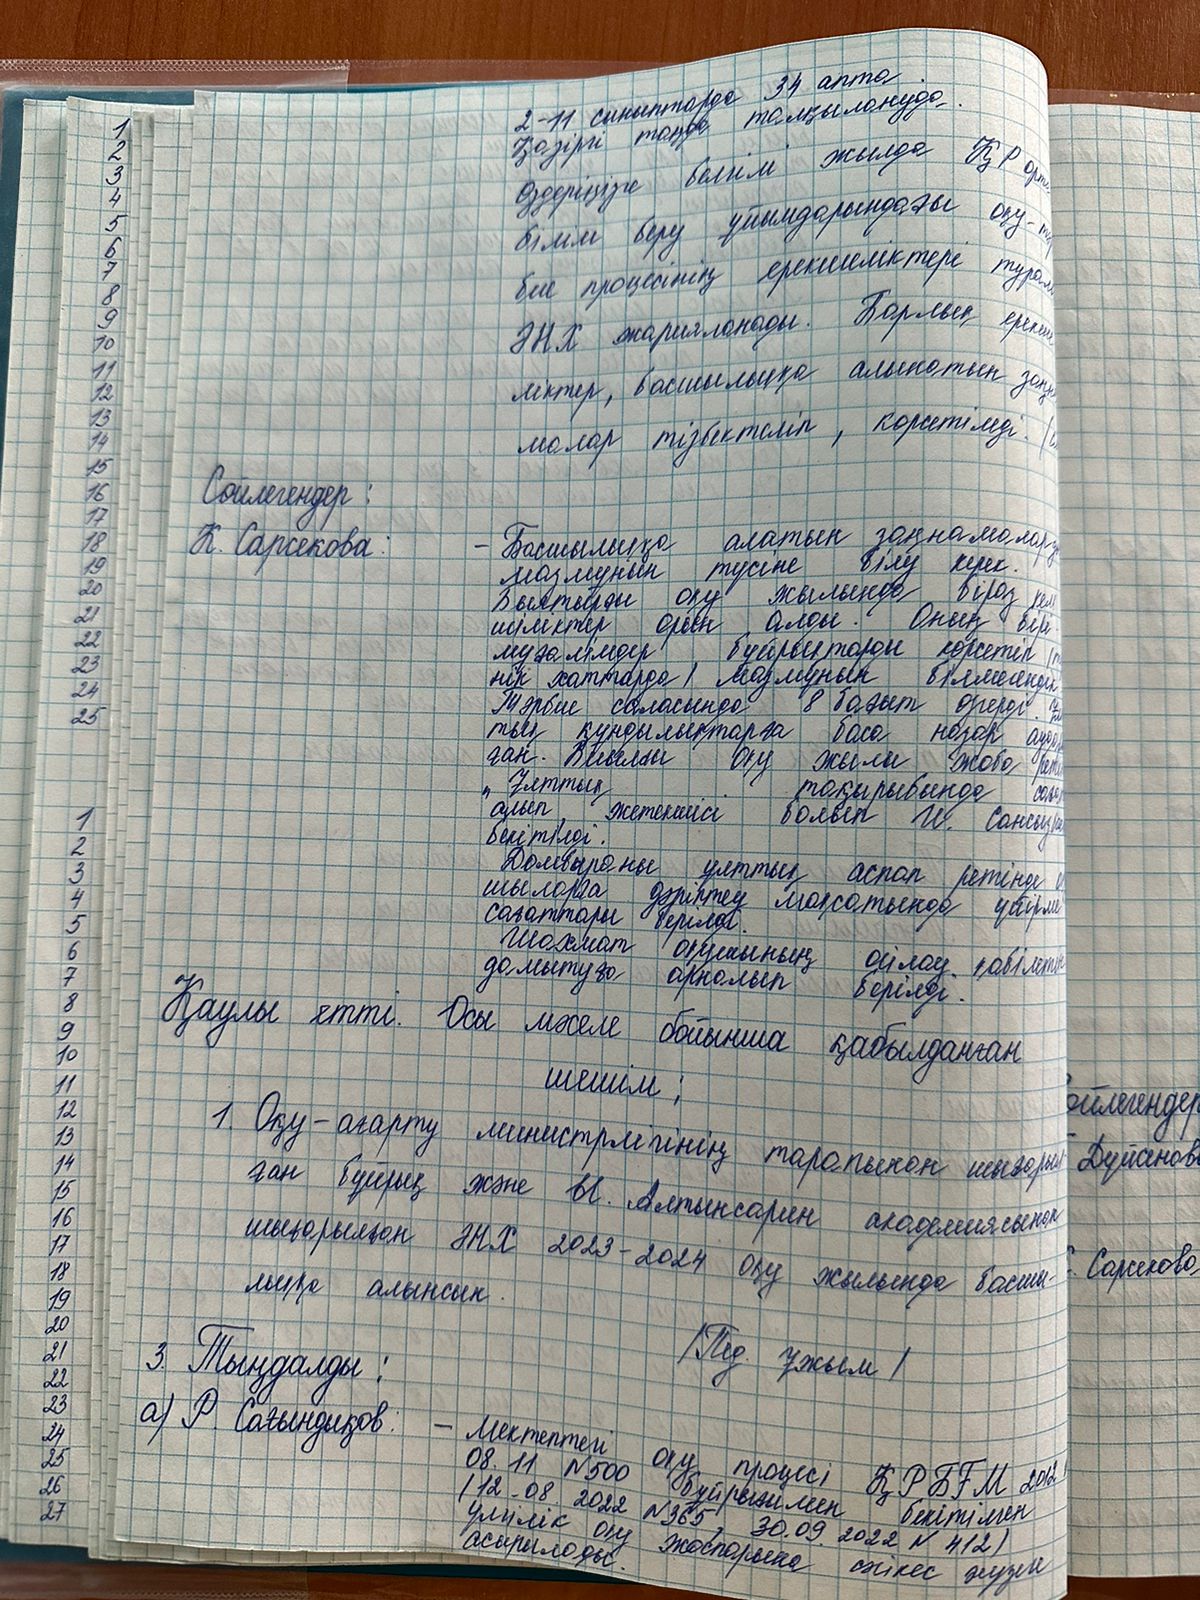 2-11 сыныптарда 34 апта.
Қазіргі таңда талқылануда.
Өздеріңізге белгілі жылда ҚР орта
білім беру ұйымдарындағы оқу-тәр
бие процесінің ерекшеліктері турал
ӘНХ жарияланады. Барлық ерекше
ліктер, басшылыққа алынатын заңна
малар тізбектеліп, көрсетілді.
Сөйлегендер:
К. Сарсекова:
- Басшылыққа алатын заңнамалар
мазмұнын түсіне білу керек.
Былтырғы оқу жылында біраз кем
шіліктер орын алды. Оның бірі
мұғалімдер бұйрықтарды көрсетіп
нік хаттарда/ мазмұнын білмегендік
Тәрбие саласында 8 бағыт өзгерді. Ұл
тық құндылықтарға баса назар аудар
ған. Биылғы оқу жылы жоба
"Ұлттық тақырыбында
алып, жетекшісі болып И.
бекітілді.
Домбыраны ұлттық аспап ретінде
шыларға дәріптеу мақсатында үйірме
сағаттары берілді.
Шахмат оқушының ойлау қабілетін
дамытуға арналып берілді.
Қаулы етті. Осы мәселе бойынша қабылданған
шешім:
1. Оқу-ағарту министрлігінің тарапынан шығарыл
ған бұйрық және Ы. Алтынсарин академиясынан
шығарылған ӘНХ 2023-2024 оқу жылында басшы-
лыққа алынсын.
/Пед. ұжым/
3. Тыңдалды:
а) Р. Сағындықов: - Мектептегі оқу процесі ҚРБҒМ 2012
08.11 №500 бұйрығымен бекітілген
/12-08 2022 №365, 30.09.2022 №412/
үлгілік оқу жоспарына сәйкес жүзеге
асырылады.
Сөйлегендер
Дүйсенова
Сарсекова
1
2
3
4
5
6
7
8
9
10
11
12
13
14
15
16
17
18
19
20
21
22
23
24
25
1
2
3
4
5
6
7
8
9
10
11
12
13
14
15
16
17
18
19
20
21
22
23
24
25
26
27